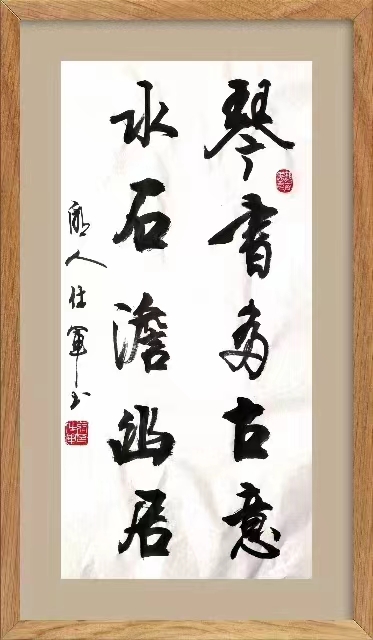 琴書多古意
水石澹幽居
人仕軍书